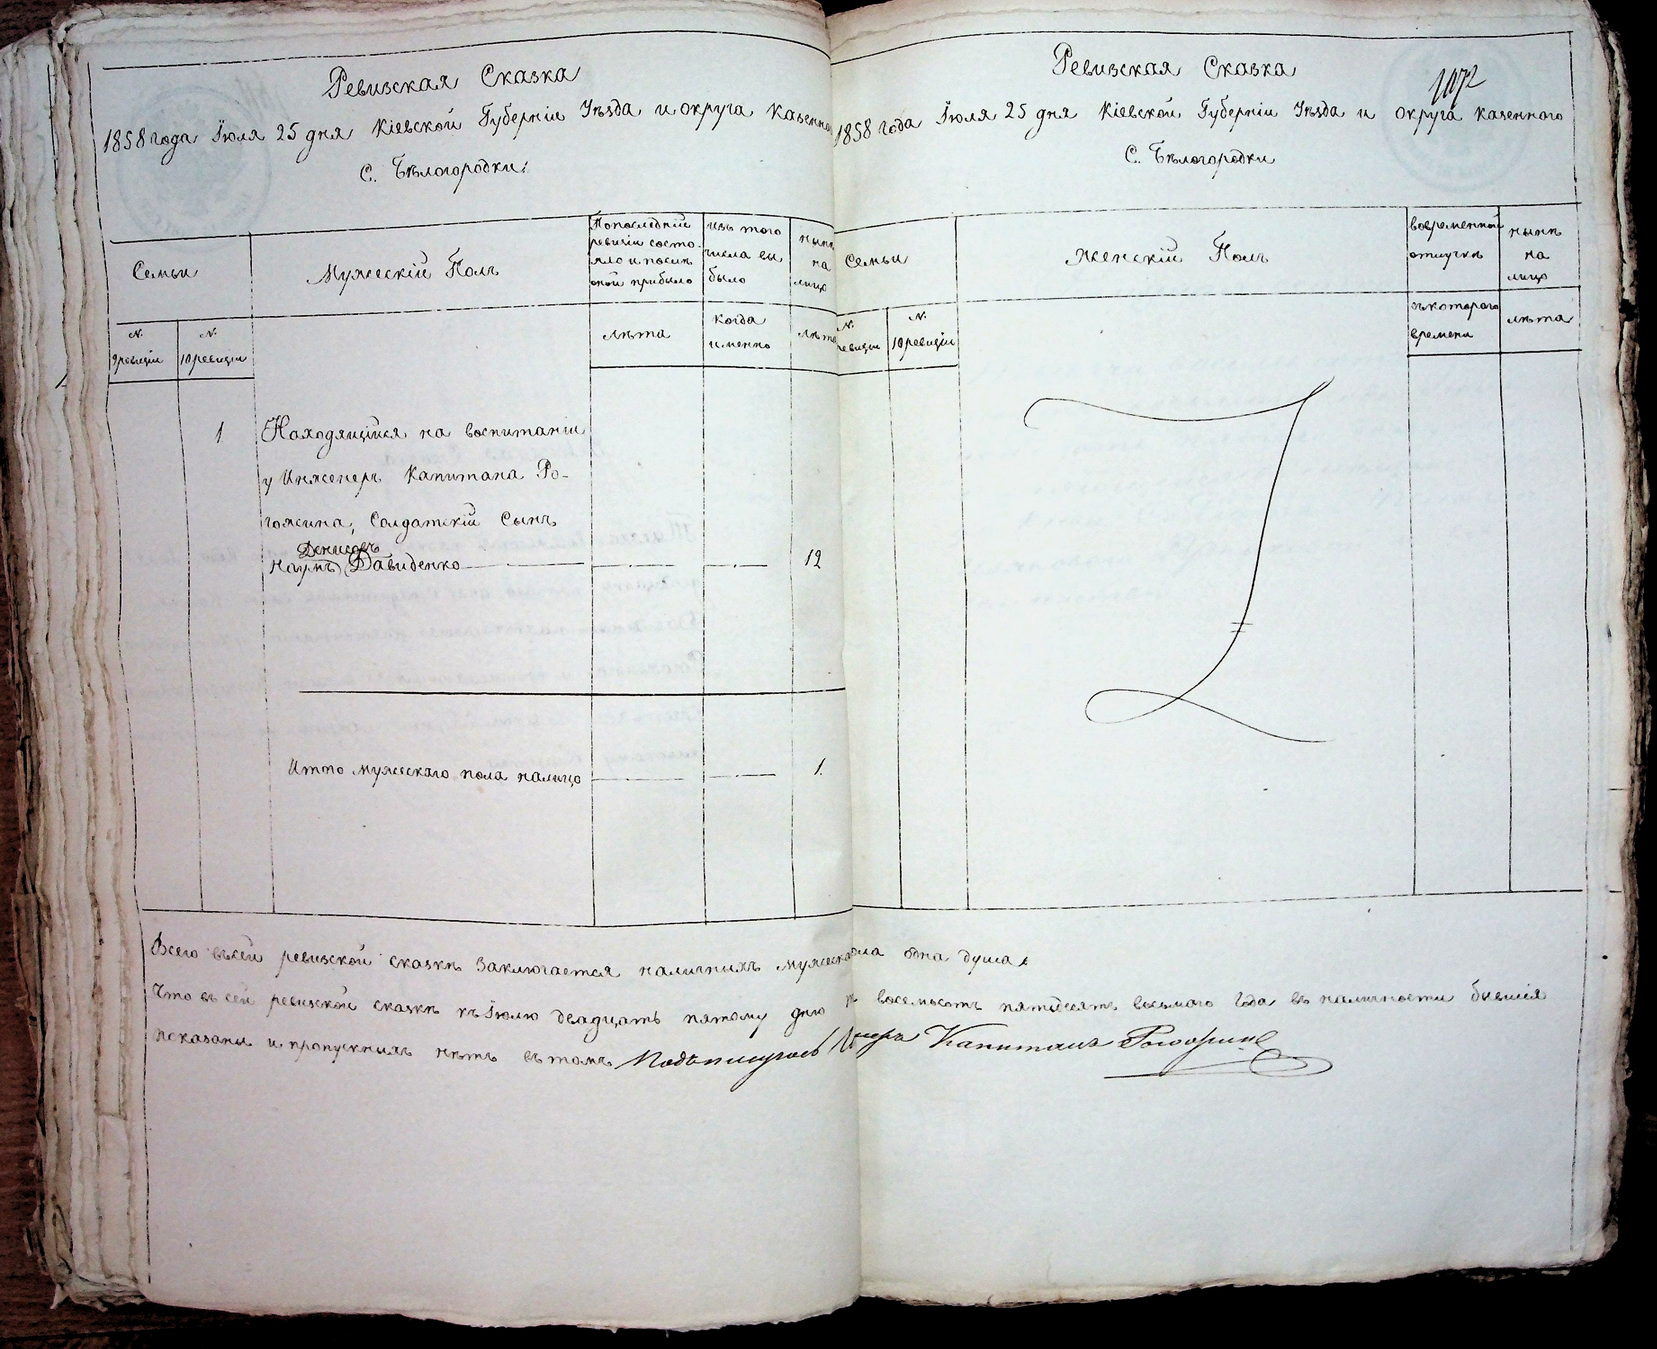 Ревизская Сказка
1858 года Іюля 25 дня Кіевской Губерніи Уѣзда и округа казенно
С. Бѣлогородки.
Семьи
Мужескій Полъ
По последней ревизіи состояло и после оной прибыло
изъ того числа выбыло
нынѣ на лицо
№ 9 ревизіи
№ 10 ревизіи
лѣта
когда именно
лѣта
1
Находящійся на воспитаніи
у Инженеръ Капитана Ро-
гожина, Солдатскій Сынъ
Денисовъ
Наумъ Давиденко
12
Итого мужескаго пола налицо
1.
Всего въ сей ревизской сказкѣ Заключается наличныхъ мужеска
Что въ сей ревизской сказкѣ къ Іюлю двадцать пятому дню
показаны и пропускныхъ нѣтъ въ томъ Подписуюсь
Ревизская Сказка
1072
1858 года Іюля 25 дня Кіевской Губерніи Уѣзда и Округа казенного
С. Бѣлогородки
Семьи
Женскій Полъ
во временной отлучкѣ
нынѣ на лицо
№ ревизіи
№ 10 ревизіи
съ котораго времени
лѣта
пола одна душа
восемьсотъ пятьдесятъ восьмого Года въ наличности бывшія
Капитанъ Рогожин